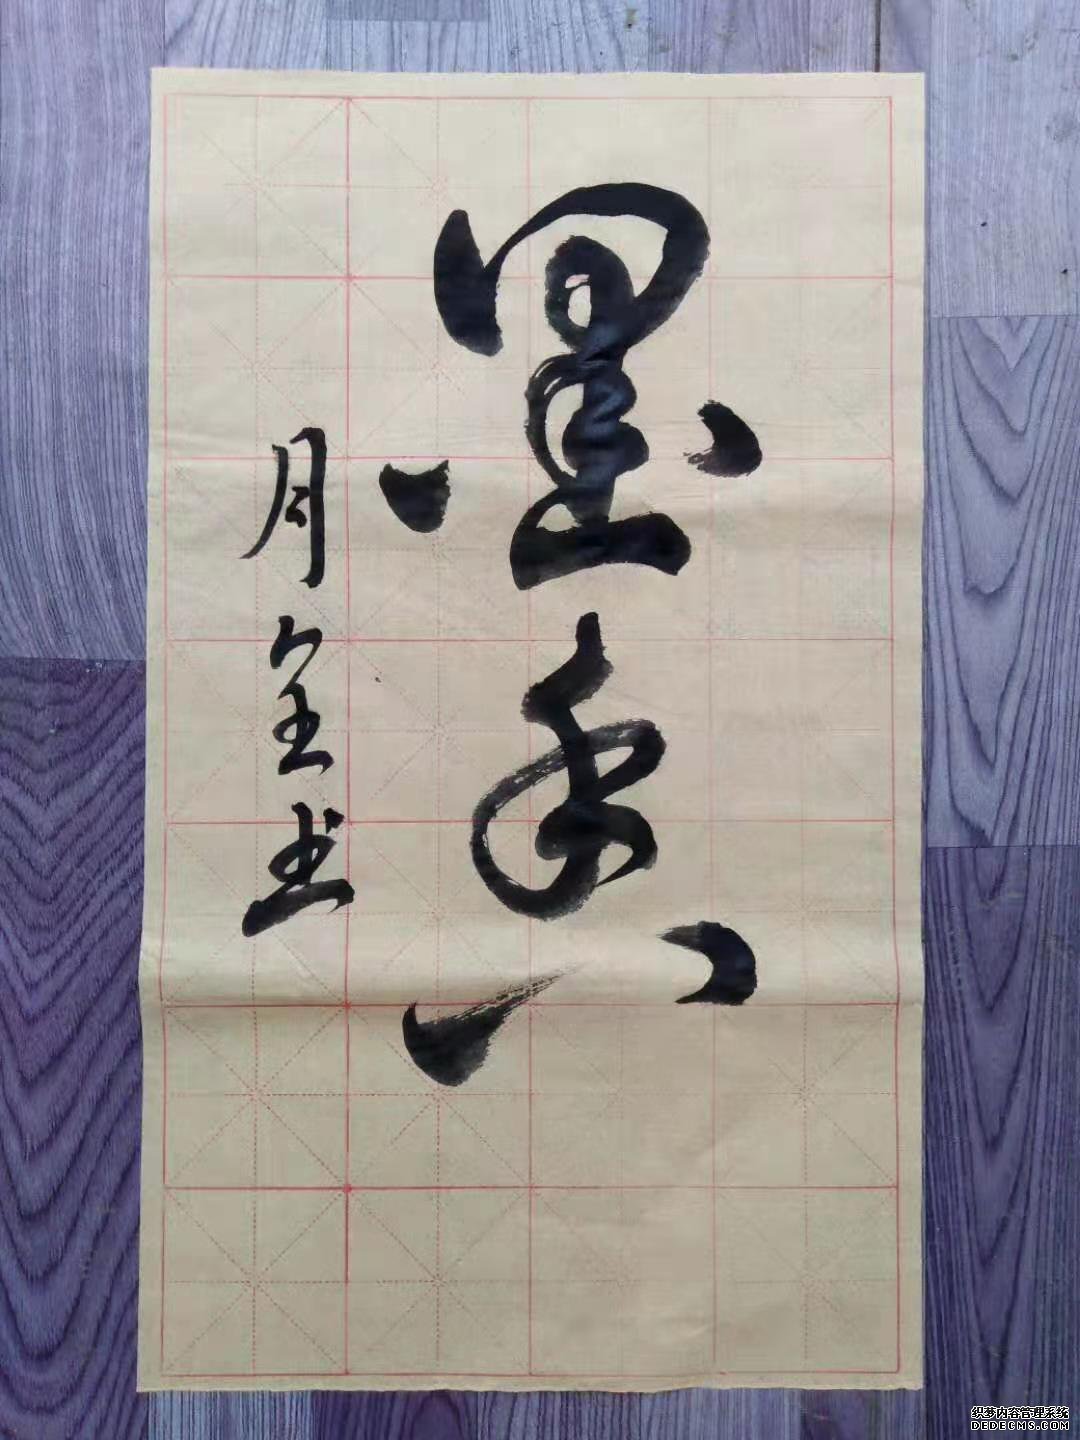 墨香
月全书
织梦内容管理系统
DEDECMS.COM